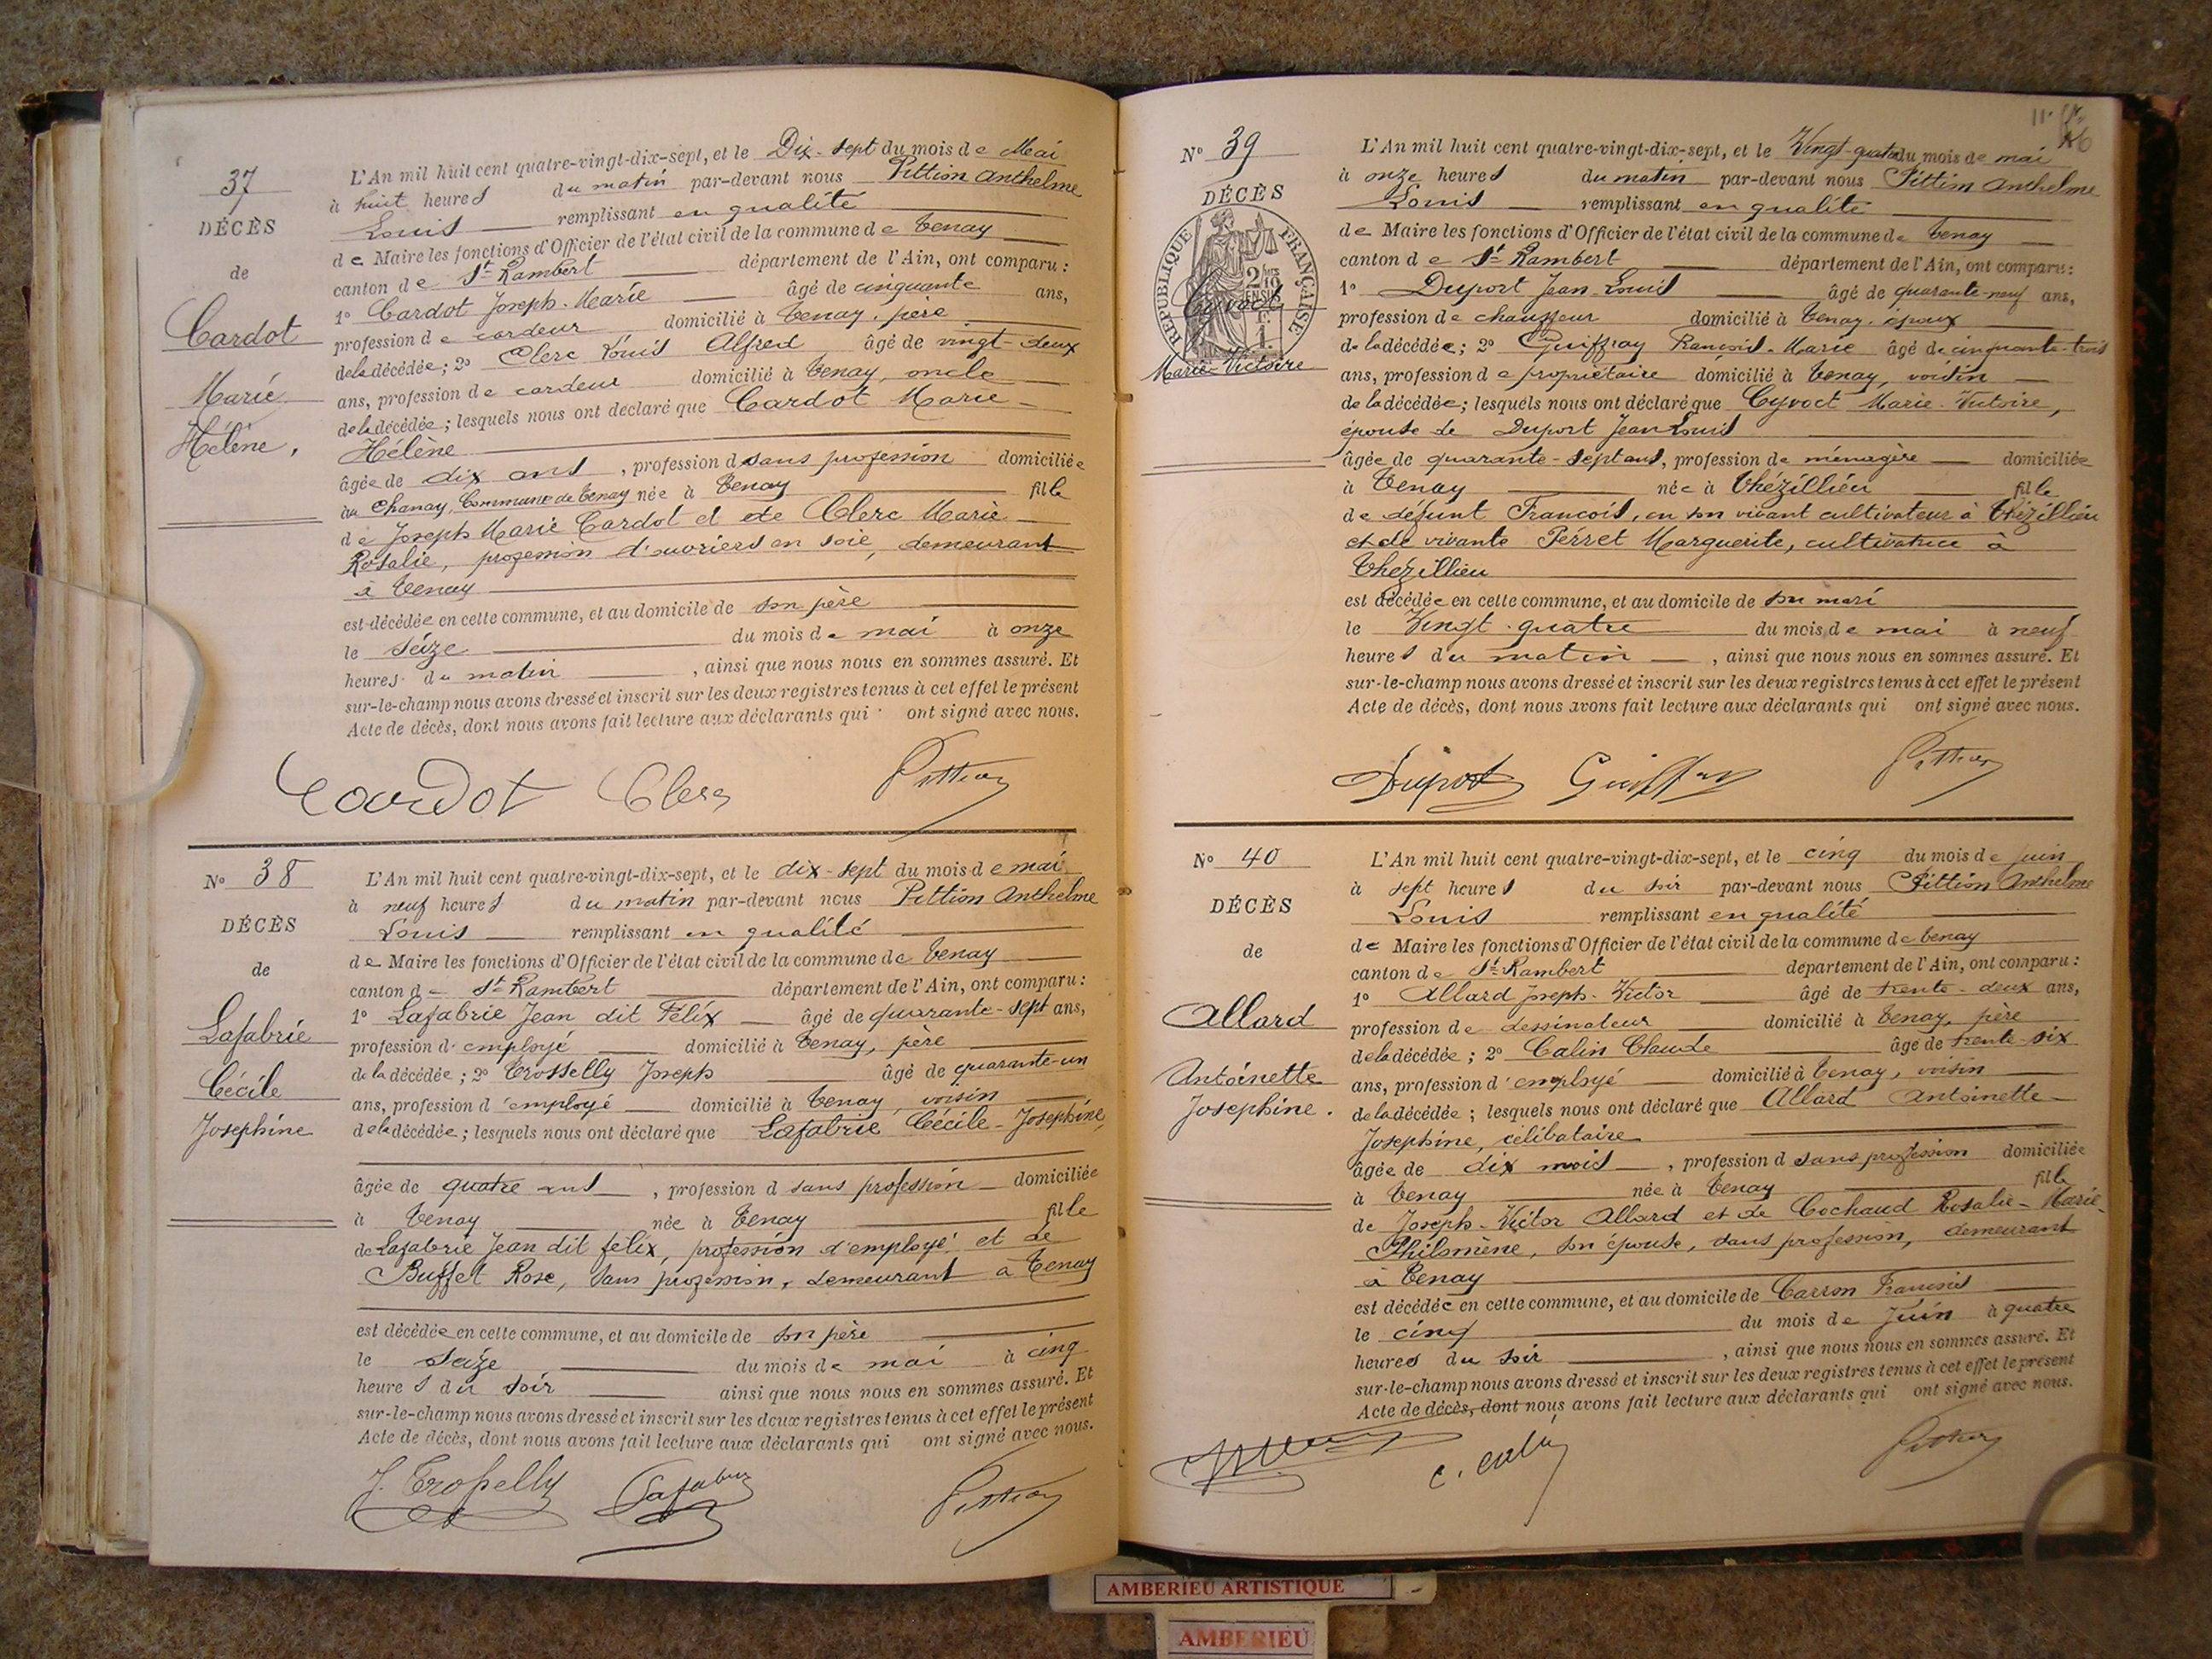 37
DÉCÈS
de
Cardot
Marie
Hélène,
L'An mil huit cent quatre-vingt-dix-sept, et le Dix-sept du mois de Mai
à huit heures du matin par-devant nous Pittion Anthelme
Louis remplissant en qualité
de Maire les fonctions d'Officier de l'état civil de la commune de Tenay
canton de St Rambert département de l'Ain, ont comparu :
1° Cardot Joseph-Marie âgé de cinquante ans,
profession de cardeur domicilié à Tenay, père
de la décédée ; 2° Clerc Louis Alfred âgé de vingt-deux
ans, profession de cardeur domicilié à Tenay, oncle
de la décédée ; lesquels nous ont déclaré que Cardot Marie-
Hélène
âgée de dix ans, profession d sans profession domiciliée
au Chanay, Commune de Tenay née à Tenay fille
de Joseph Marie Cardot et de Clerc Marie
Rosalie, profession d'ouvriers en soie, demeurant
à Tenay
est décédée en cette commune, et au domicile de son père
le seize du mois de mai à onze
heures du matin, ainsi que nous nous en sommes assuré. Et
sur-le-champ nous avons dressé et inscrit sur les deux registres tenus à cet effet le présent
Acte de décès, dont nous avons fait lecture aux déclarants qui ont signé avec nous.
Cardot Clerc Pittion
N° 38
DÉCÈS
de
Lafabrie
Cécile
Josephine
L'An mil huit cent quatre-vingt-dix-sept, et le dix-sept du mois de mai
à neuf heures du matin par-devant nous Pittion Anthelme
Louis remplissant en qualité
de Maire les fonctions d'Officier de l'état civil de la commune de Tenay
canton de St Rambert département de l'Ain, ont comparu :
1° Lafabrie Jean dit Félix âgé de quarante-sept ans,
profession d'employé domicilié à Tenay, père
de la décédée ; 2° Crosselly Joseph âgé de quarante-un
ans, profession d'employé domicilié à Tenay, voisin
de la décédée ; lesquels nous ont déclaré que Lafabrie Cécile-Joséphine,
âgée de quatre ans, profession d sans profession domiciliée
à Tenay née à Tenay fille
de Lafabrie Jean dit félix, profession d'employé et de
Buffet Rose, sans profession, demeurant à Tenay
est décédée en cette commune, et au domicile de son père
le seize du mois de mai à cinq
heures du soir ainsi que nous nous en sommes assuré. Et
sur-le-champ nous avons dressé et inscrit sur les deux registres tenus à cet effet le présent
Acte de décès, dont nous avons fait lecture aux déclarants qui ont signé avec nous.
J. Crosselly Lafabrie Pittion
N° 39
DÉCÈS
RÉPUBLIQUE FRANÇAISE
Cyvoct
Marie-Victoire
L'An mil huit cent quatre-vingt-dix-sept, et le Vingt-quatre du mois de mai
à onze heures du matin par-devant nous Pittion Anthelme
Louis remplissant en qualité
de Maire les fonctions d'Officier de l'état civil de la commune de Tenay
canton de St Rambert département de l'Ain, ont comparu :
1° Duport Jean-Louis âgé de quarante-neuf ans,
profession de chauffeur domicilié à Tenay, époux
de la décédée ; 2° Guiffray Francois-Marie âgé de cinquante-trois
ans, profession de propriétaire domicilié à Tenay, voisin
de la décédée ; lesquels nous ont déclaré que Cyvoct Marie-Victoire,
épouse de Duport Jean Louis
âgée de quarante-sept ans, profession de ménagère domiciliée
à Tenay née à Thézillieu fille
de défunt Francois, en son vivant cultivateur à Thézillieu
et de vivante Perret Marguerite, cultivatrice à
Thezillieu
est décédée en cette commune, et au domicile de son mari
le Vingt-quatre du mois de mai à neuf
heures du matin, ainsi que nous nous en sommes assuré. Et
sur-le-champ nous avons dressé et inscrit sur les deux registres tenus à cet effet le présent
Acte de décès, dont nous avons fait lecture aux déclarants qui ont signé avec nous.
Duport Guiffray Pittion
N° 40
DÉCÈS
de
Allard
Antoinette
Josephine.
L'An mil huit cent quatre-vingt-dix-sept, et le cinq du mois de juin
à sept heures du soir par-devant nous Pittion Anthelme
Louis remplissant en qualité
de Maire les fonctions d'Officier de l'état civil de la commune de Tenay
canton de St Rambert département de l'Ain, ont comparu :
1° Allard Joseph-Victor âgé de trente-deux ans,
profession de dessinateur domicilié à Tenay, père
de la décédée ; 2° Calin Claude âgé de trente-six
ans, profession d'employé domicilié à Tenay, voisin
de la décédée ; lesquels nous ont déclaré que Allard Antoinette-
Josephine, célibataire
âgée de dix mois, profession d sans profession domiciliée
à Tenay née à Tenay fille
de Joseph-Victor Allard et de Cochaud Rosalie-Marie-
Philomène, son épouse, sans profession, demeurant
à Tenay
est décédée en cette commune, et au domicile de Carron Francois
le cinq du mois de Juin à quatre
heures du soir, ainsi que nous nous en sommes assuré. Et
sur-le-champ nous avons dressé et inscrit sur les deux registres tenus à cet effet le présent
Acte de décès, dont nous avons fait lecture aux déclarants qui ont signé avec nous.
Pittion
AMBERIEU ARTISTIQUE
AMBERIEU